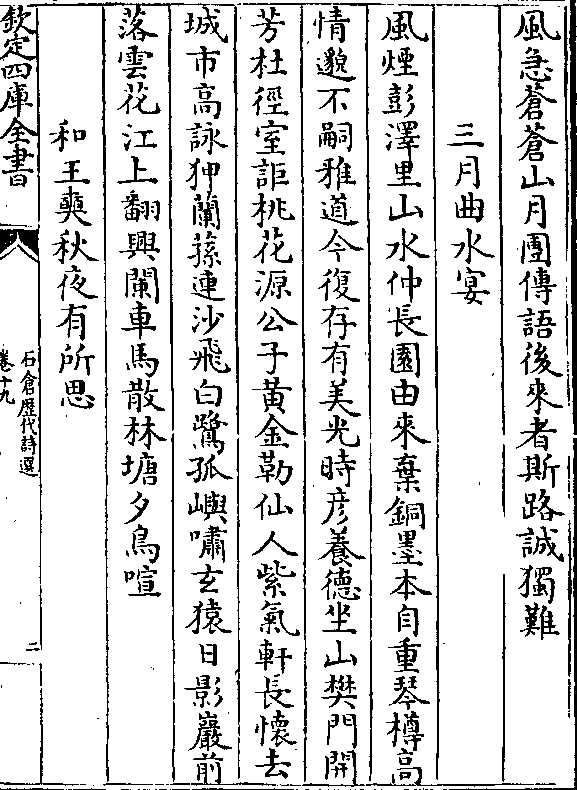 風急蒼蒼山月團傳語後來者斯路誠獨難
三月曲水宴
風煙彭澤里山水仲長園由來棄銅墨本自重琴樽高
情邈不嗣雅道今復存有美光時彦養德坐山樊門開
芳杜徑室距桃花源公子黃金勒仙人紫氣軒長懷去
城市高詠狎蘭蓀連沙飛白鷺孤嶼嘯玄猿日影巖前
落雲花江上翻興闌車馬散林塘夕鳥喧
和王奭秋夜有所思
欽定四庫全書
石倉歷代詩選
卷十九
二